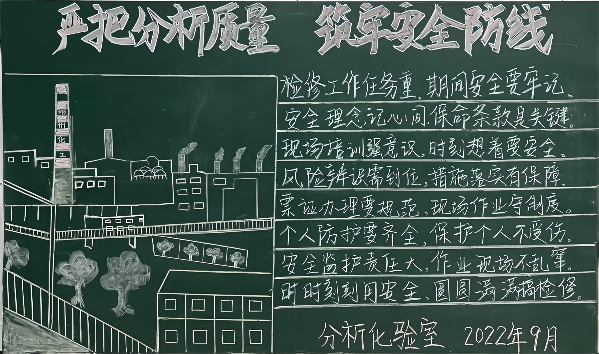 严把分析质量 筑牢安全防线
检修工作任务重，期间安全要牢记。
安全理念记心间，保命条款是关键。
现场培训强意识，时刻想着要安全。
风险辨识需到位，措施落实有保障。
票证办理要规范，现场作业守制度。
个人防护要齐全，保护个人不受伤。
安全监护责任大，作业现场不乱窜。
时时刻刻用安全，圆圆满满搞检修。
分析化验室 2022年9月